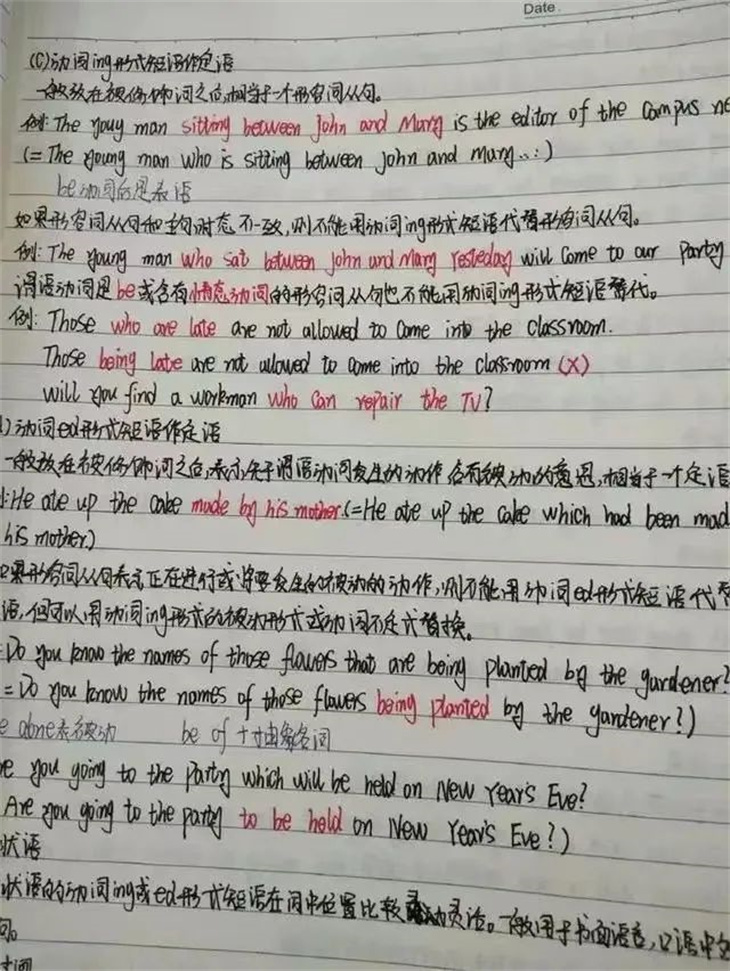 Date
(C)动词ing形式短语作定语
一般放在被修饰词之后,相当于一个形容词从句。
例: The youy man sitting between John and Mary is the editor of the campus ne
(= The young man who is sitting between John and Mary...)
be动词后是表语
如果形容词从句和主句时态不一致,则不能用动词ing形式短语代替形容词从句。
例: The young man who sat between John and Mary Yesteday will come to our party
谓语动词是be或含有情态动词的形容词从句也不能用动词ing形式短语替代。
例: Those who are late are not allowed to come into the classroom.
Those being late are not allowed to come into the classroom (X)
will you find a workman who can repair the TV?
)动词ed形式短语作定语
一般放在被修饰词之后,表示先于谓语动词发生的动作含有被动的意思,相当于一个定语
: He ate up the cake made by his mother.(=He ate up the cake which had been mad
his mother.)
果形容词从句表示正在进行或将要发生的被动的动作,则不能用动词ed形式短语代替
语,但可以用动词ing形式的被动形式或动词不定式替换。
Do you know the names of those flowers that are being planted by the gardener?
= Do you know the names of those flowers being planted by the gardener?)
表被动 be of +抽象名词
e you going to the party which will be held on New Year's Eve?
Are you going to the party to be held on New Year's Eve?)
状语
状语的动词ing或ed形式短语在词中位置比较灵活。一般用于书面语言,口语中
词。